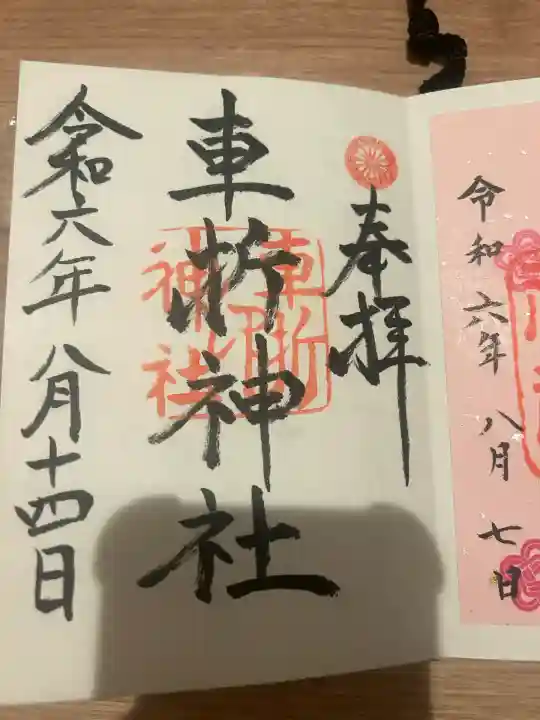 令和六年八月七日
奉拝
車折神社
令和六年八月十四日
車折
神社